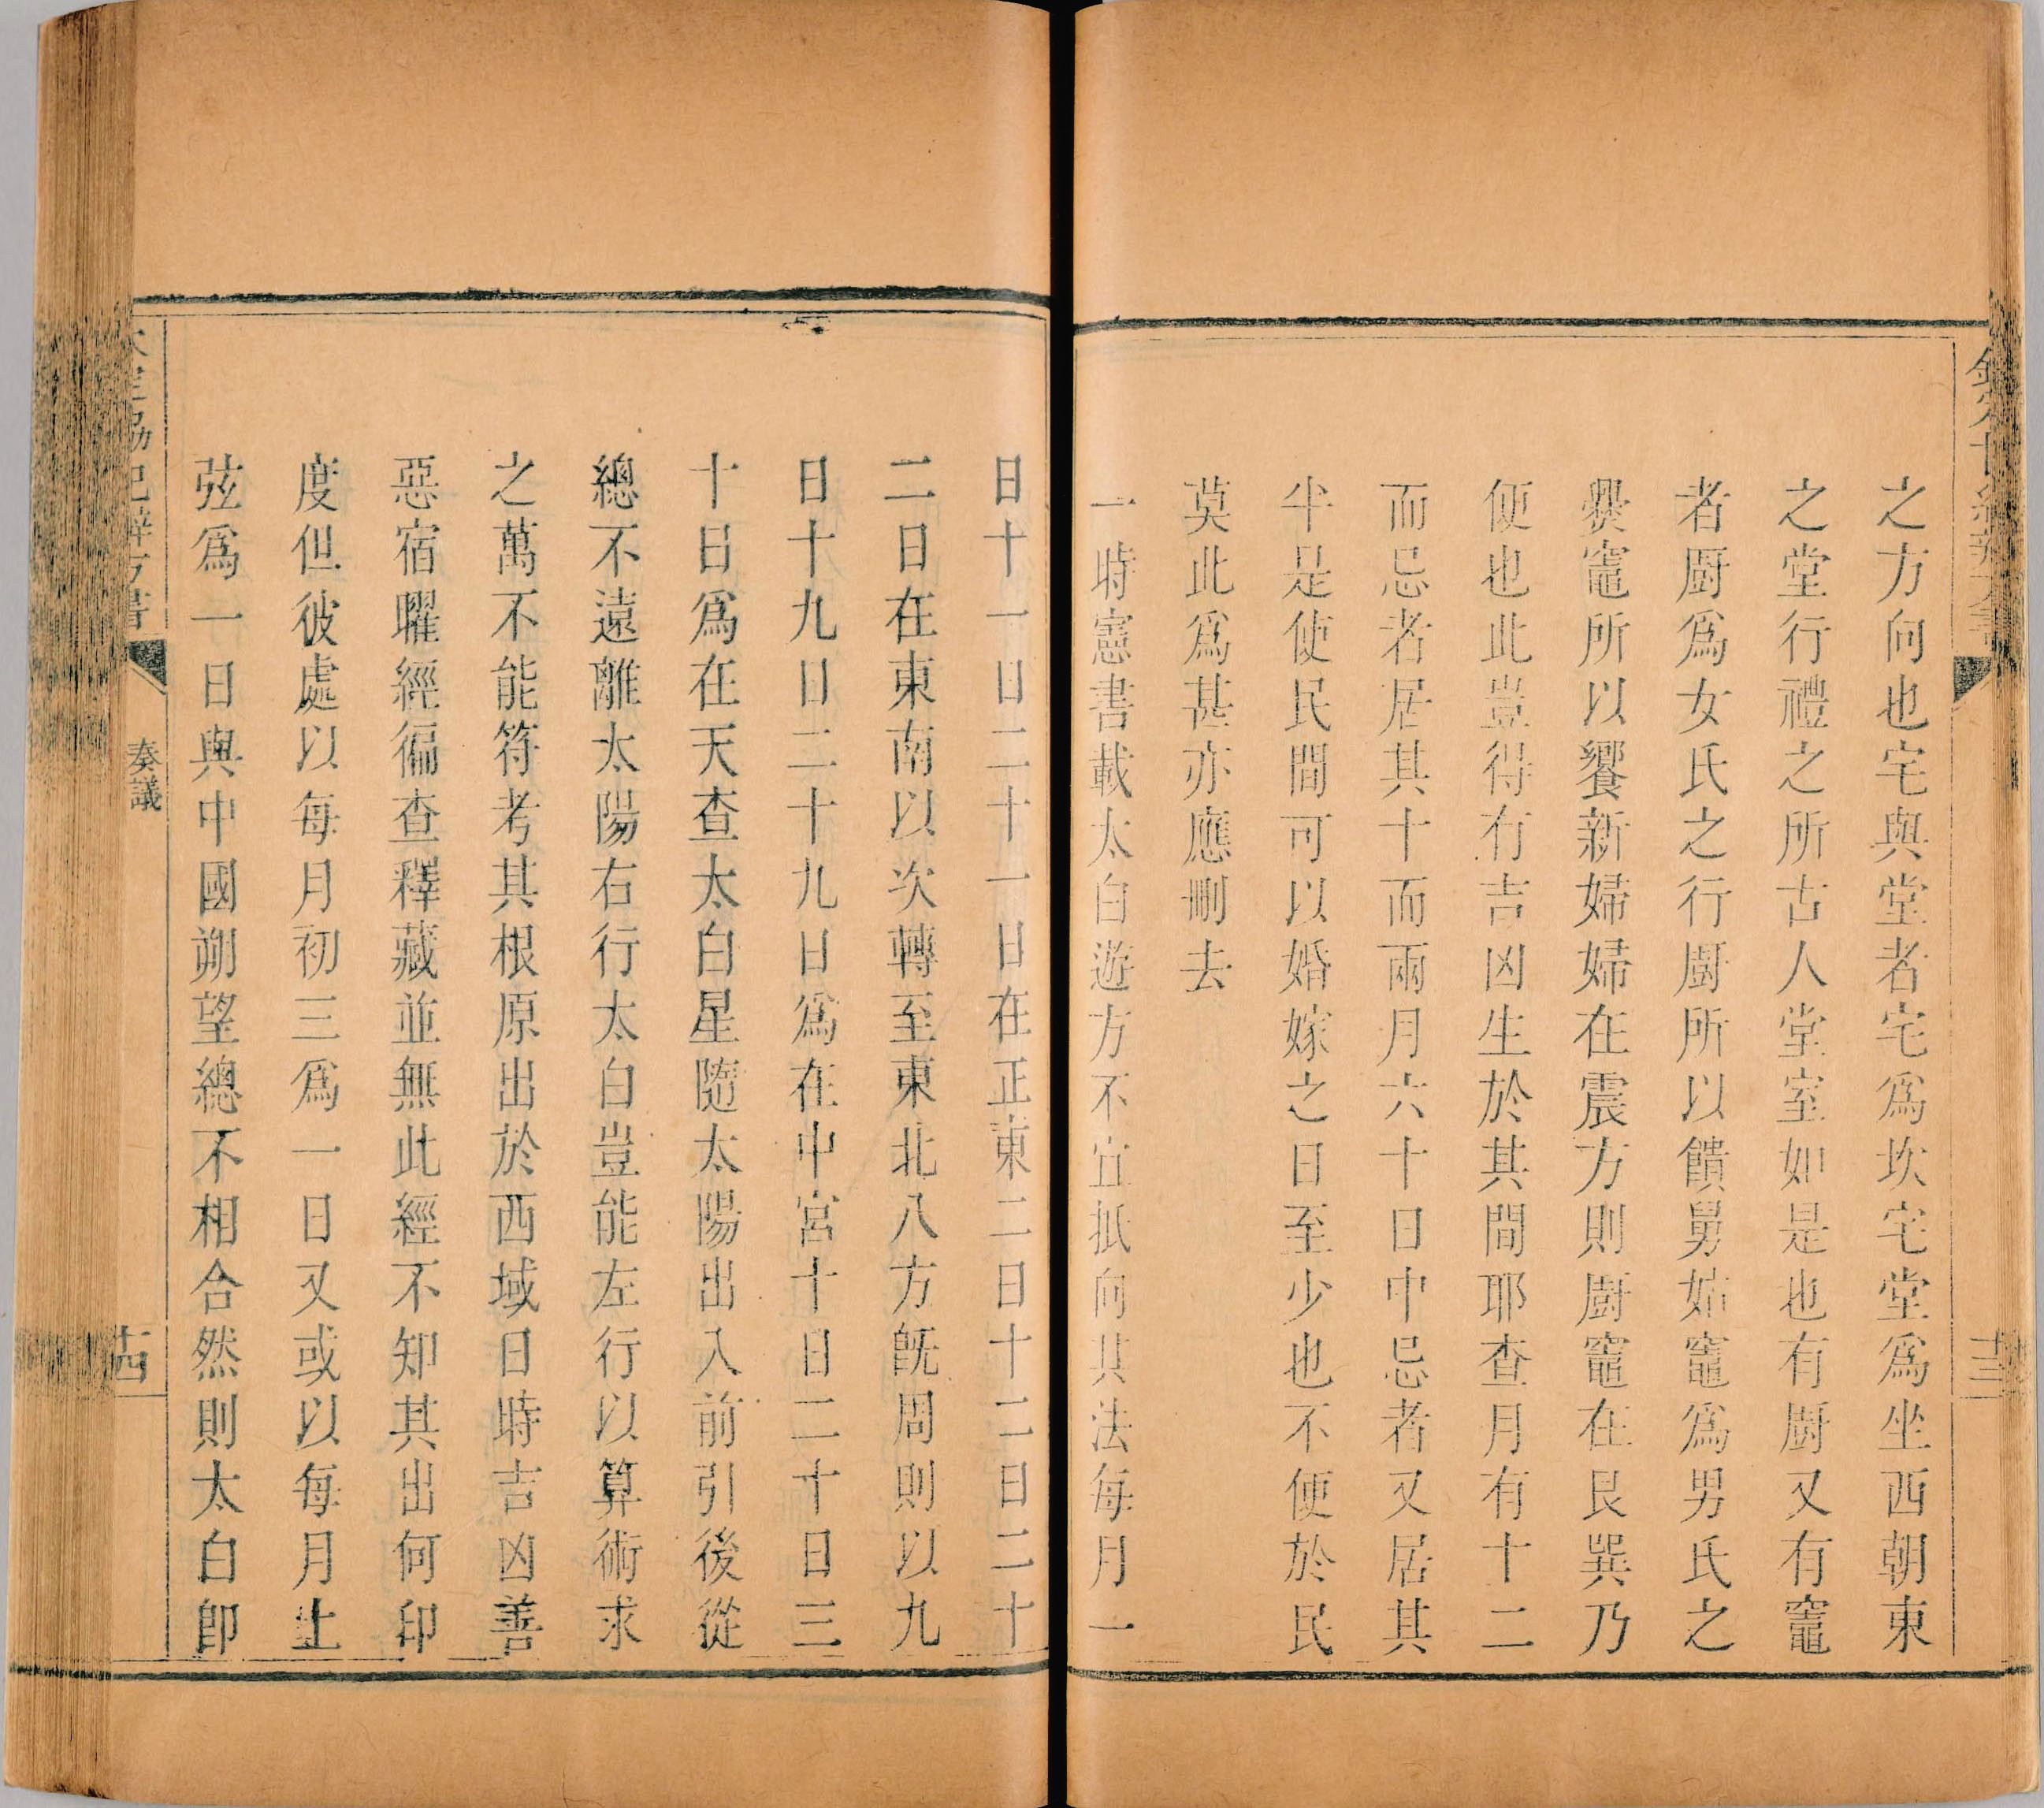 之方向也宅與堂者宅爲坎宅堂爲坐西朝東
之堂行禮之所古人堂室如是也有厨又有竈
者厨爲女氏之行厨所以饋舅姑竈爲男氏之
爨竈所以饗新婦婦在震方則厨竈在艮巽乃
便也此豈得有吉凶生於其間耶查月有十二
而忌者居其十而兩月六十日中忌者又居其
半是使民間可以婚嫁之日至少也不便於民
莫此爲甚亦應刪去
一時憲書載太白遊方不宜抵向其法每月一
日十一日二十一日在正東二日十二日二十
二日在東南以次轉至東北八方旣周則以九
日十九日二十九日爲在中宮十日二十日三
十日爲在天查太白星隨太陽出入前引後從
總不遠離太陽右行太白豈能左行以算術求
之萬不能符考其根原出於西域日時吉凶善
惡宿曜經徧查釋藏並無此經不知其出何印
度但彼處以每月初三爲一日又或以每月上
弦爲一日與中國朔望總不相合然則太白卽
奏議
十四